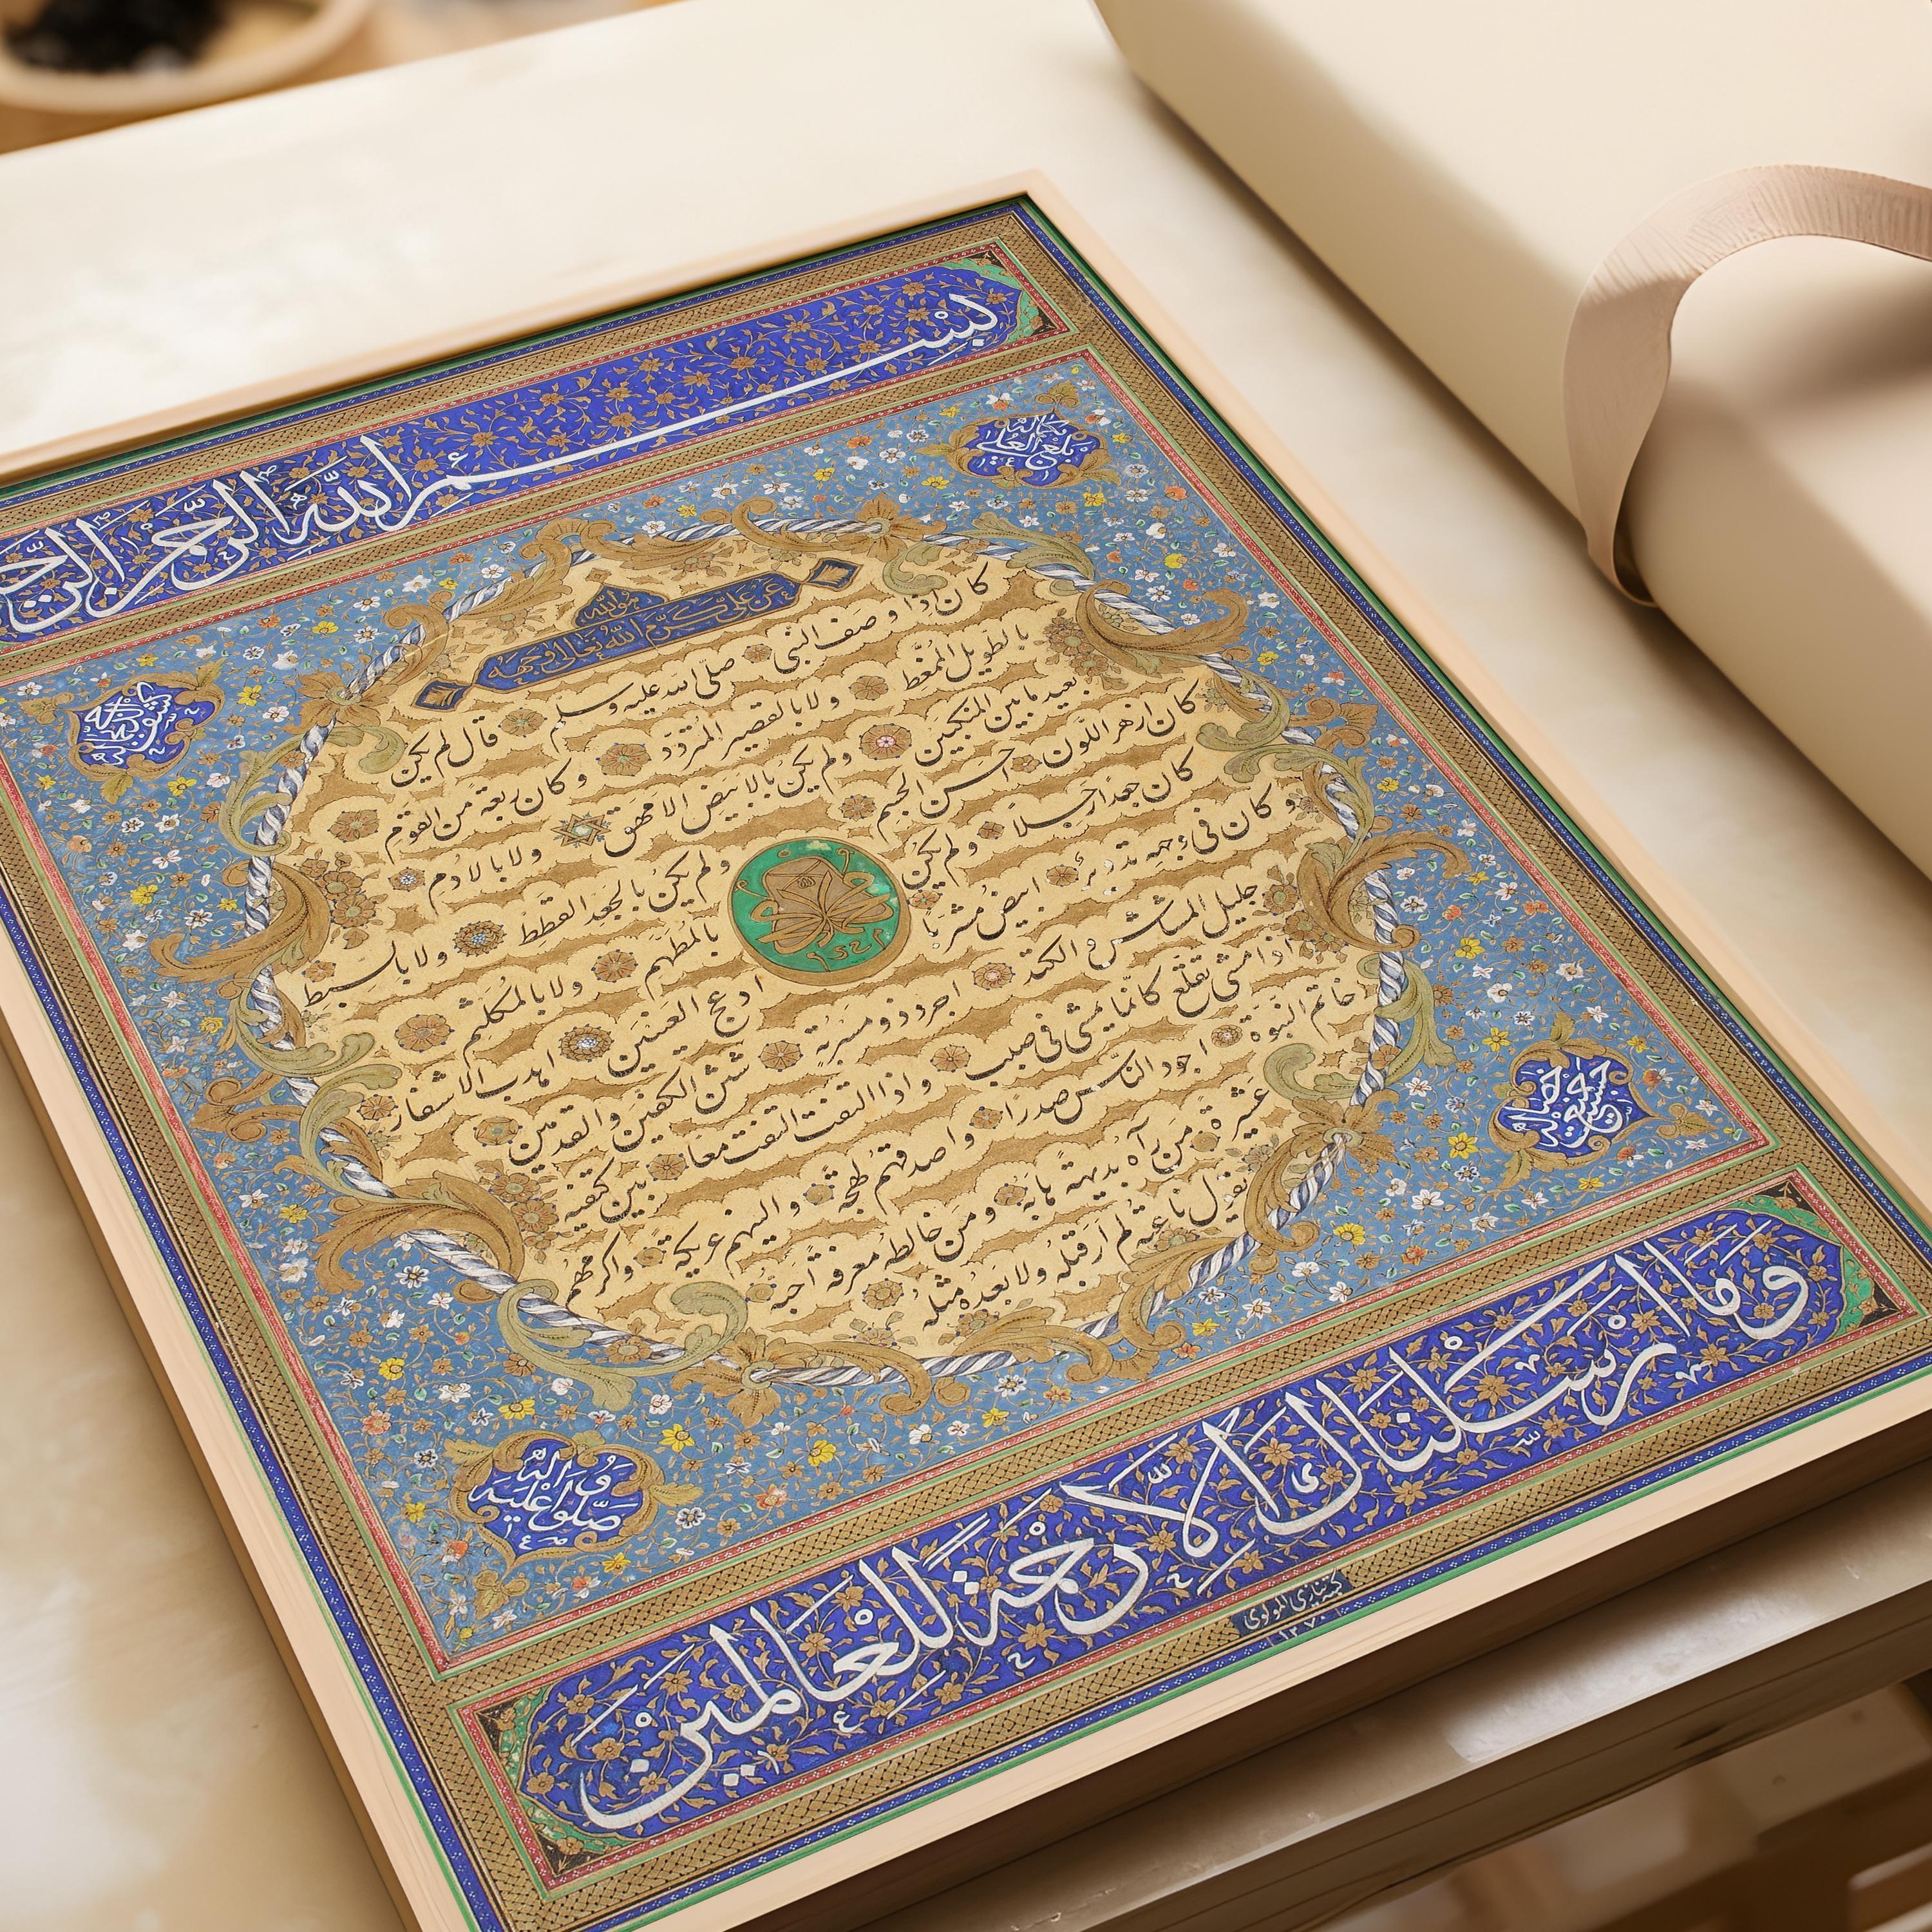 بسم الله الرحمن الرح
بلغ العلى بكماله
كشف الدجى بجماله
هو الله
عن علي كرم الله تعالى وجهه
كان اذا وصف النبي صلى الله عليه وسلم قال لم يكن
بالطويل الممغط ولا بالقصير المتردد وكان ربعة من القوم
بعيد ما بين المنكبين ولم يكن بالابيض الامهق ولا بالادم
كان ازهر اللون حسن الجسم ولم يكن بالجعد القطط ولا بالسبط
كان جعدا رجلا ولم يكن بالمطهم ولا بالمكلثم
وكان في وجهه تدوير ابيض مشربا ادعج العينين اهدب الاشفار
جليل المشاش والكتد اجرد ذو مسربة شثن الكفين والقدمين
اذا مشى تقلع كانما يمشي في صبب واذا التفت التفت معا بين كتفيه
خاتم النبوة اجود الناس صدرا واصدقهم لهجة والينهم عريكة واكرمهم
عشيرة من رآه بديهة هابه ومن خالطه معرفة احبه
يقول ناعته لم ار قبله ولا بعده مثله
حسنت جميع خصاله
صلوا عليه وآله
وما ارسلناك الا رحمة للعالمين
كتبه نيازي المولوي
١٣٧٠